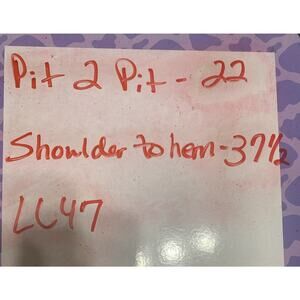 Pit 2 Pit - 22
Shoulder to hem - 37 1/2
LL47